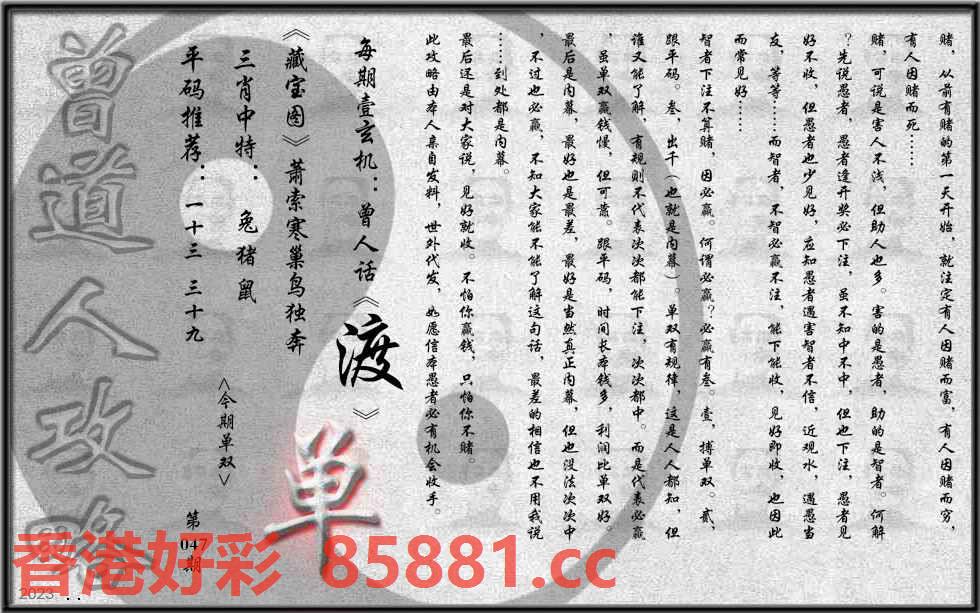 赌，从前有赌的第一天开始，就注定有人因赌而富，有人因赌而穷，
有人因赌而死……
赌，可说是害人不浅，但助人也多。害的是愚者，助的是智者。何解
？先说愚者，愚者逢开奖必下注，虽不知中不中，但也下注，愚者见
好不收，但愚者也少见好，应知愚者遇害智者不信，近观水，遇愚当
友，等等……而智者，不智必赢不注，能下能收，见好即收，也因此
而常见好……
智者下注不算赌，因必赢。何谓必赢？必赢有叁。壹，搏单双。贰，
跟平码。叁，出千（也就是内幕）。单双有规律，这是人人都知，但
谁又能了解，有规则不代表次次都能下注，次次都中。而是代表必赢
，虽单双赢钱慢，但可靠。跟平码，时间长本钱多，利润比单双好。
最后是内幕，最好也是最差，最好是当然真正内幕，但也没法次次中
，不过也必赢，不知大家能不能了解这句话，最差的相信也不用我说
……到处都是内幕。
最后还是对大家说，见好就收。不怕你赢钱，只怕你不赌。
此攻略由本人亲自发料，世外代发，如愿信本愚者必有机会收手。
每期壹玄机：曾人话《渡》
《藏宝图》萧索寒巢鸟独奔
三肖中特：兔猪鼠
平码推荐：一十三 三十九
<今期单双>
单
第047期
曾道人攻略
香港好彩 85881.cc
2023